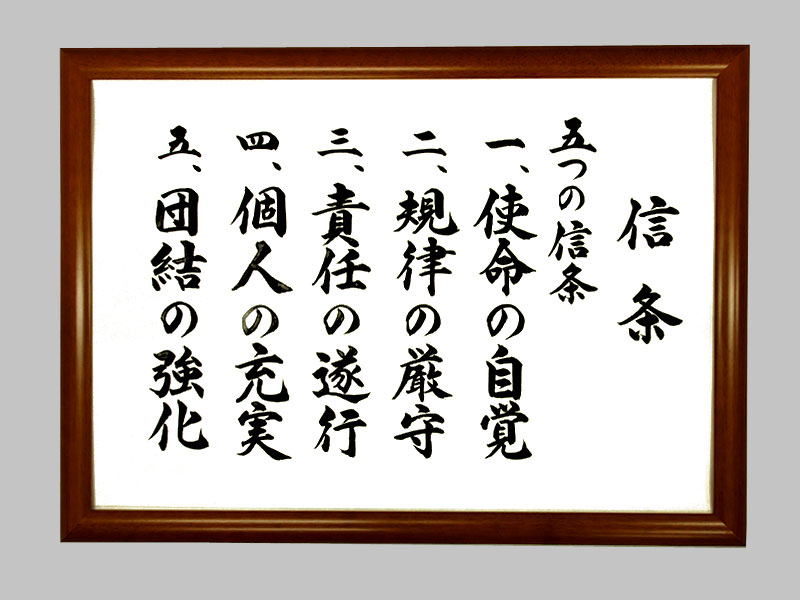 信条
五つの信条
一、使命の自覚
二、規律の厳守
三、責任の遂行
四、個人の充実
五、団結の強化